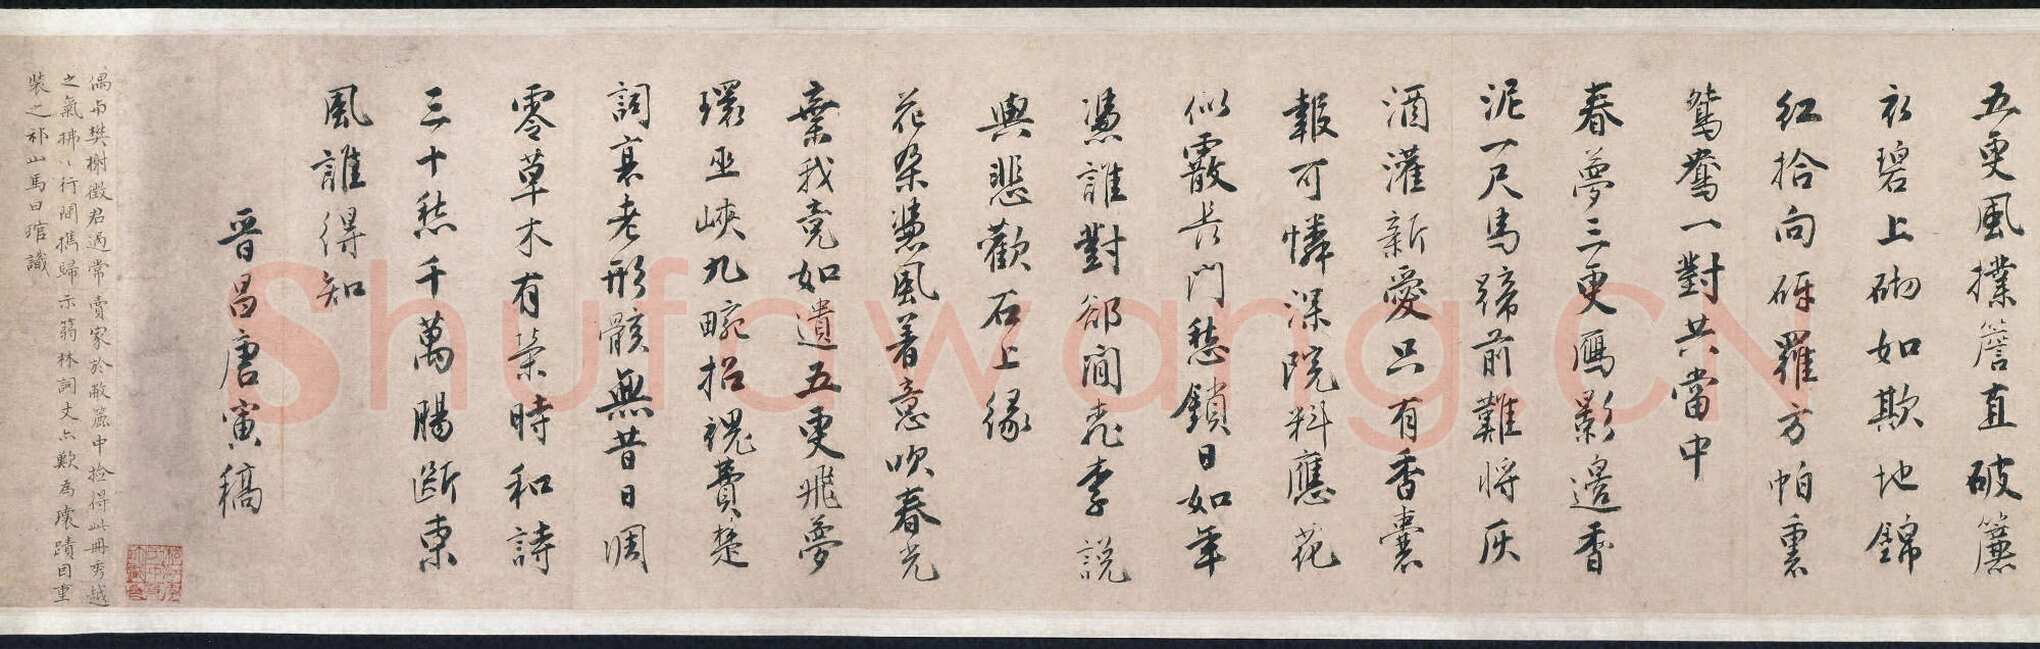 五更風撲簷直破簾
衣碧上砌如欺地錦
紅拾向砑羅方帕裹
鴛鴦一對共當中
春夢三更鴈影邊香
泥一尺馬蹄前難將灰
酒灌新愛只有香囊
報可憐深院料應花
似霰長門愁鎖日如年
憑誰對卻閒桃李說
與悲歡石上緣
花朶憑風着意吹春光
棄我竟如遺五更飛夢
環巫峽九畹招魂費楚
詞衰老形骸無昔日凋
零草木有榮時和詩
三十愁千萬腸斷東
風誰得知
晉昌唐寅稿
偶與樊榭徵君過常賣家於敝簏中撿得此冊秀越
之氣拂〻行間攜歸示蒻林詞丈亦歎為瓌蹟因重
裝之祁山馬曰琯識
Shufawang.CN